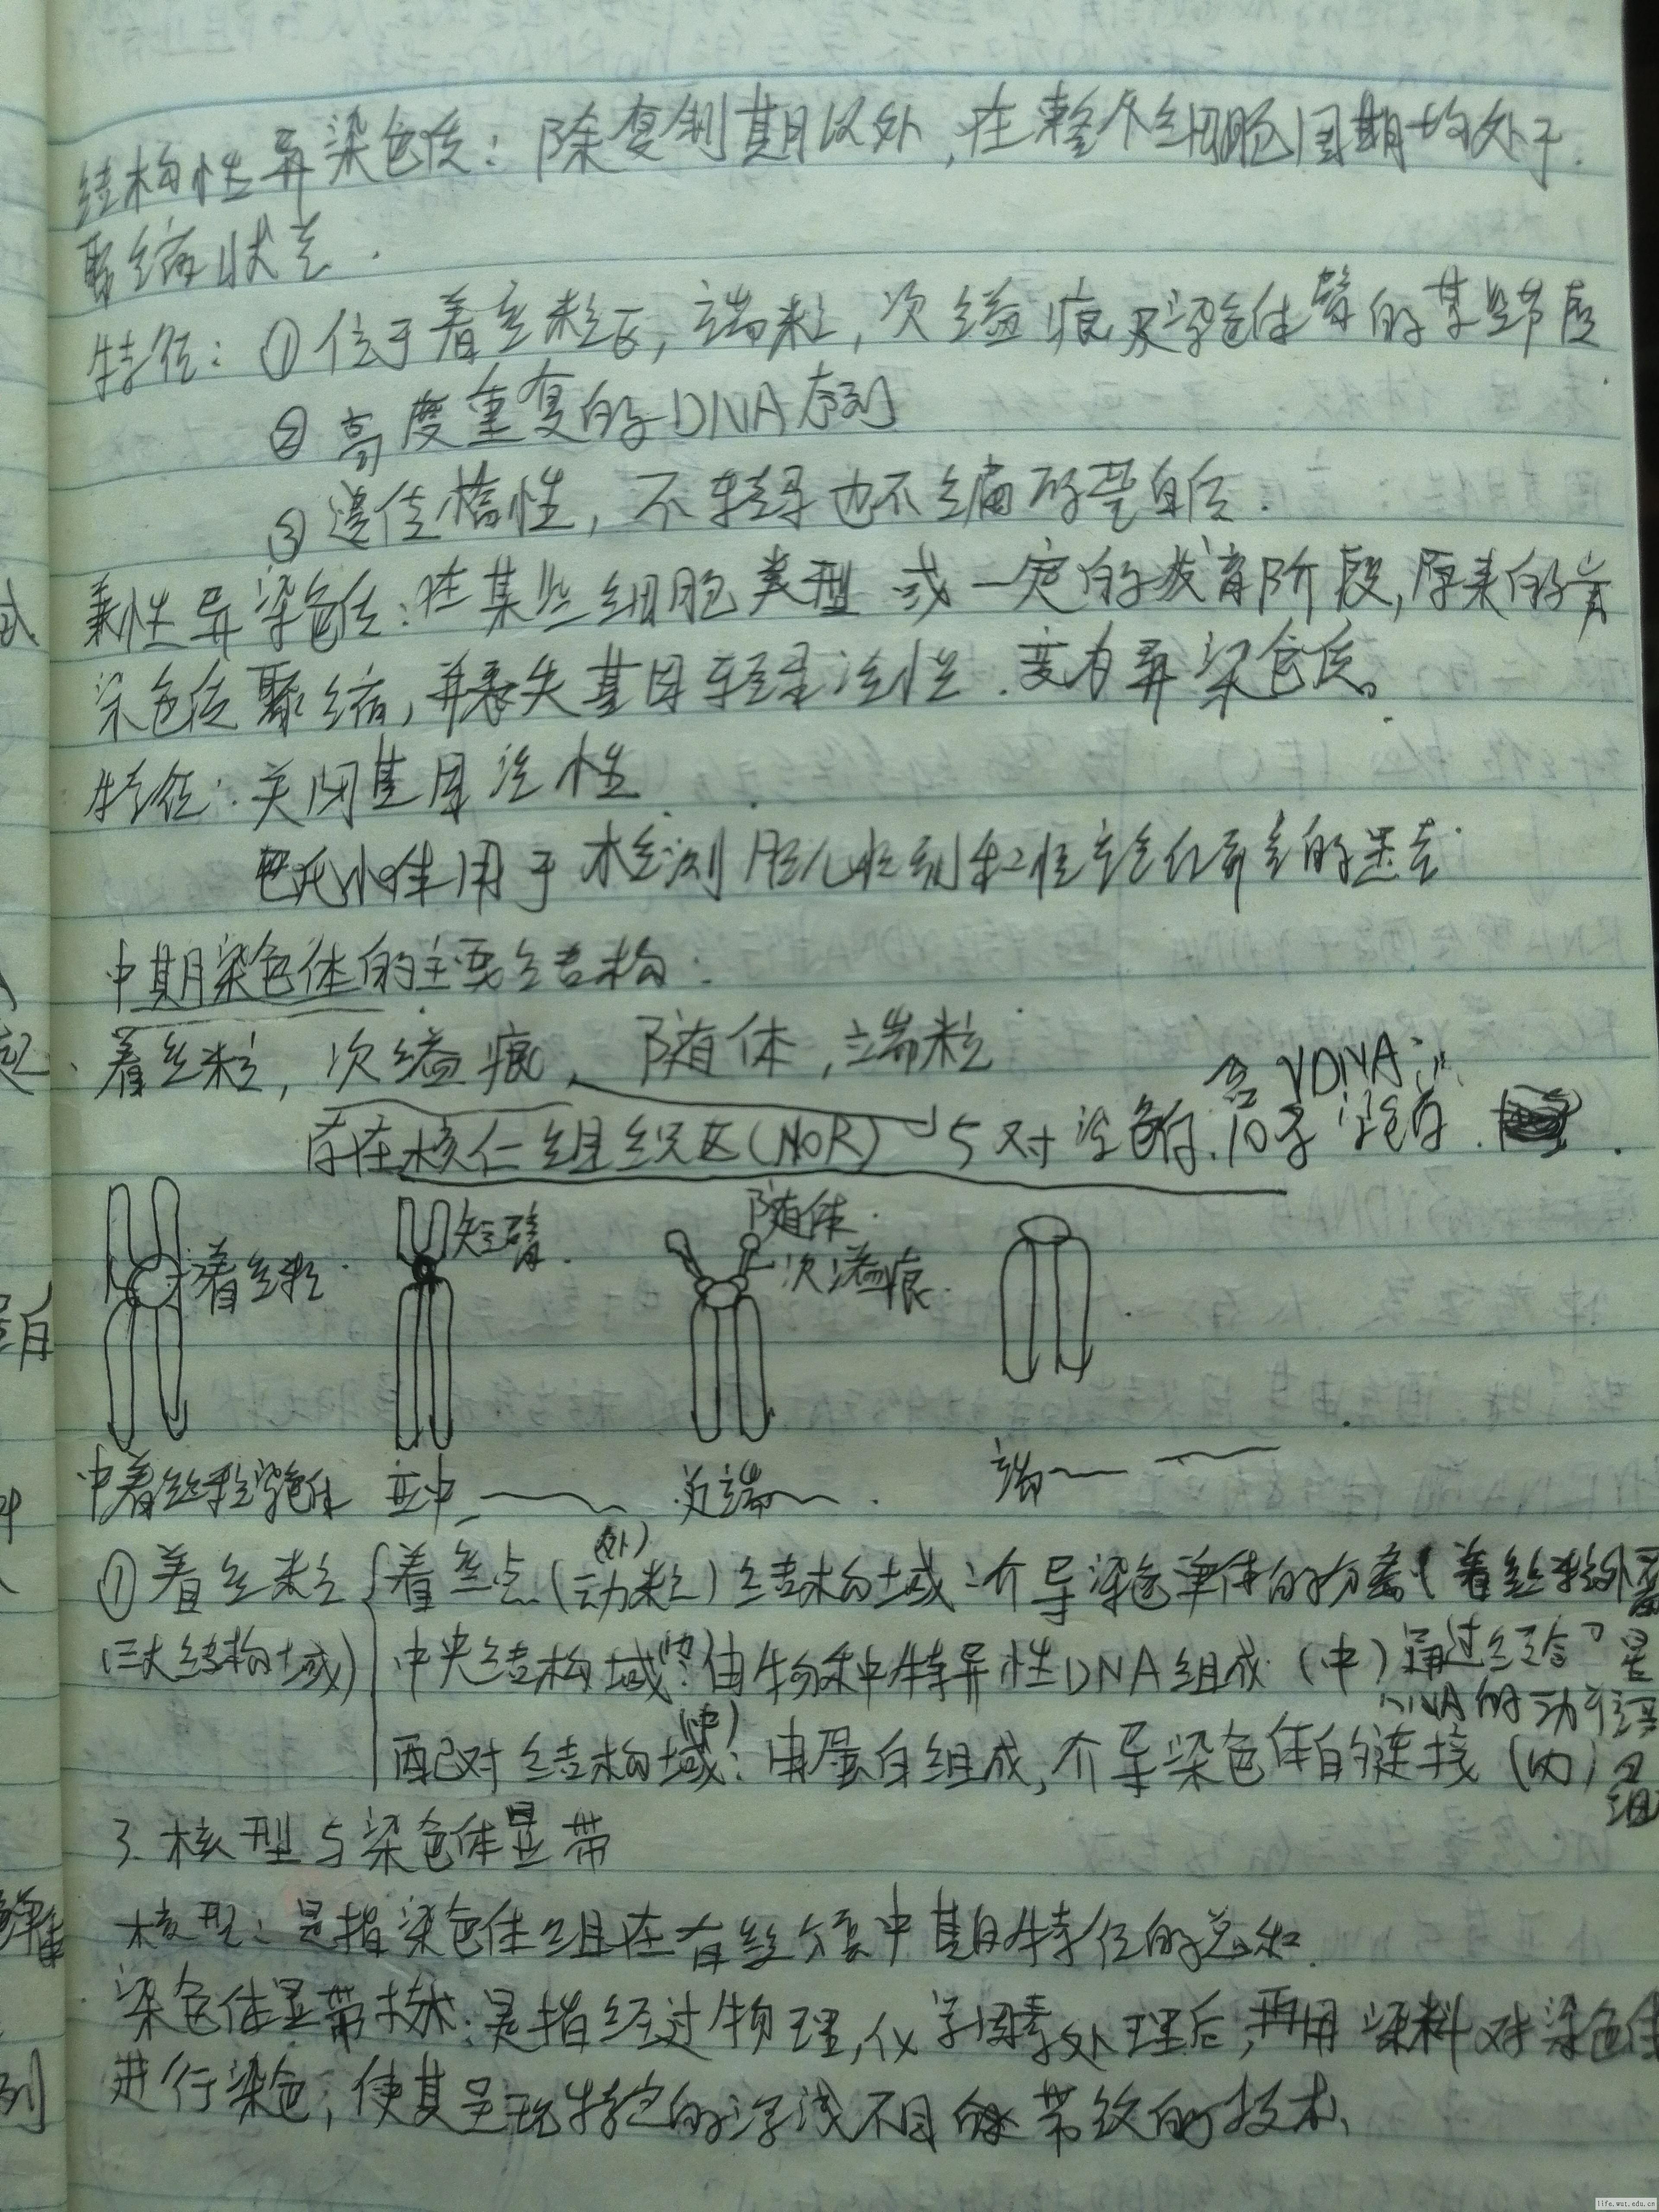 结构性异染色质：除复制期以外，在整个细胞周期均处于
聚缩状态.
特征：①位于着丝粒区，端粒，次缢痕及染色体臂的某些节段
②高度重复的DNA序列
③遗传惰性，不转录也不编码蛋白质.
兼性异染色质：在某些细胞类型或一定的发育阶段，原来的常
染色质聚缩，并丧失基因转录活性.变为异染色质。
特征：关闭基因活性
巴氏小体用于检测胎儿性别和性染色体异常的
中期染色体的主要结构：
着丝粒，次缢痕、随体，端粒
含rDNA
存在核仁组织区(NOR) 5对染色体.10条染色体.
着丝粒
短臂.
随体.
次缢痕.
中着丝粒染色体 亚中 近端 端
①着丝粒 着丝点(动粒)结构域：介导染色单体的分离(着丝粒外
(外)
(三大结构域) 中央结构域：由物种特异性DNA组成 (中)
配对结构域：由蛋白组成，介导染色体的链接 (内)
3.核型与染色体显带
核型：是指染色体组在有丝分裂中期特征的总和.
染色体显带技术：是指经过物理，化学因素处理后，再用染料对染色体
进行染色，使其呈现特定的深浅不同的带纹的技术、
life.wut.edu.cn